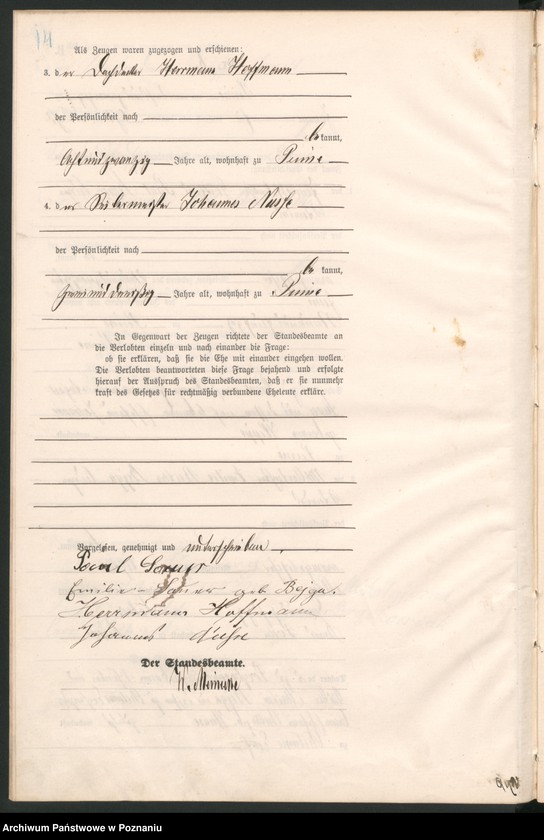 14
Als Zeugen waren zugezogen und erschienen:
3. der Dachdecker Herrmann Hoffmann
der Persönlichkeit nach
be kannt,
achtundzwanzig Jahre alt, wohnhaft zu Pinne
4. der Johannes
der Persönlichkeit nach
be kannt,
zweiunddreißig Jahre alt, wohnhaft zu Pinne
In Gegenwart der Zeugen richtete der Standesbeamte an
die Verlobten einzeln und nach einander die Frage:
ob sie erklären, daß sie die Ehe mit einander eingehen wollen.
Die Verlobten beantworteten diese Frage bejahend und erfolgte
hierauf der Ausspruch des Standesbeamten, daß er sie nunmehr
kraft des Gesetzes für rechtmäßig verbundene Eheleute erkläre.
Vorgelesen, genehmigt und unterschrieben
Emilie geb
Herrmann Hoffmann
Johannes
Der Standesbeamte.
Archiwum Państwowe w Poznaniu